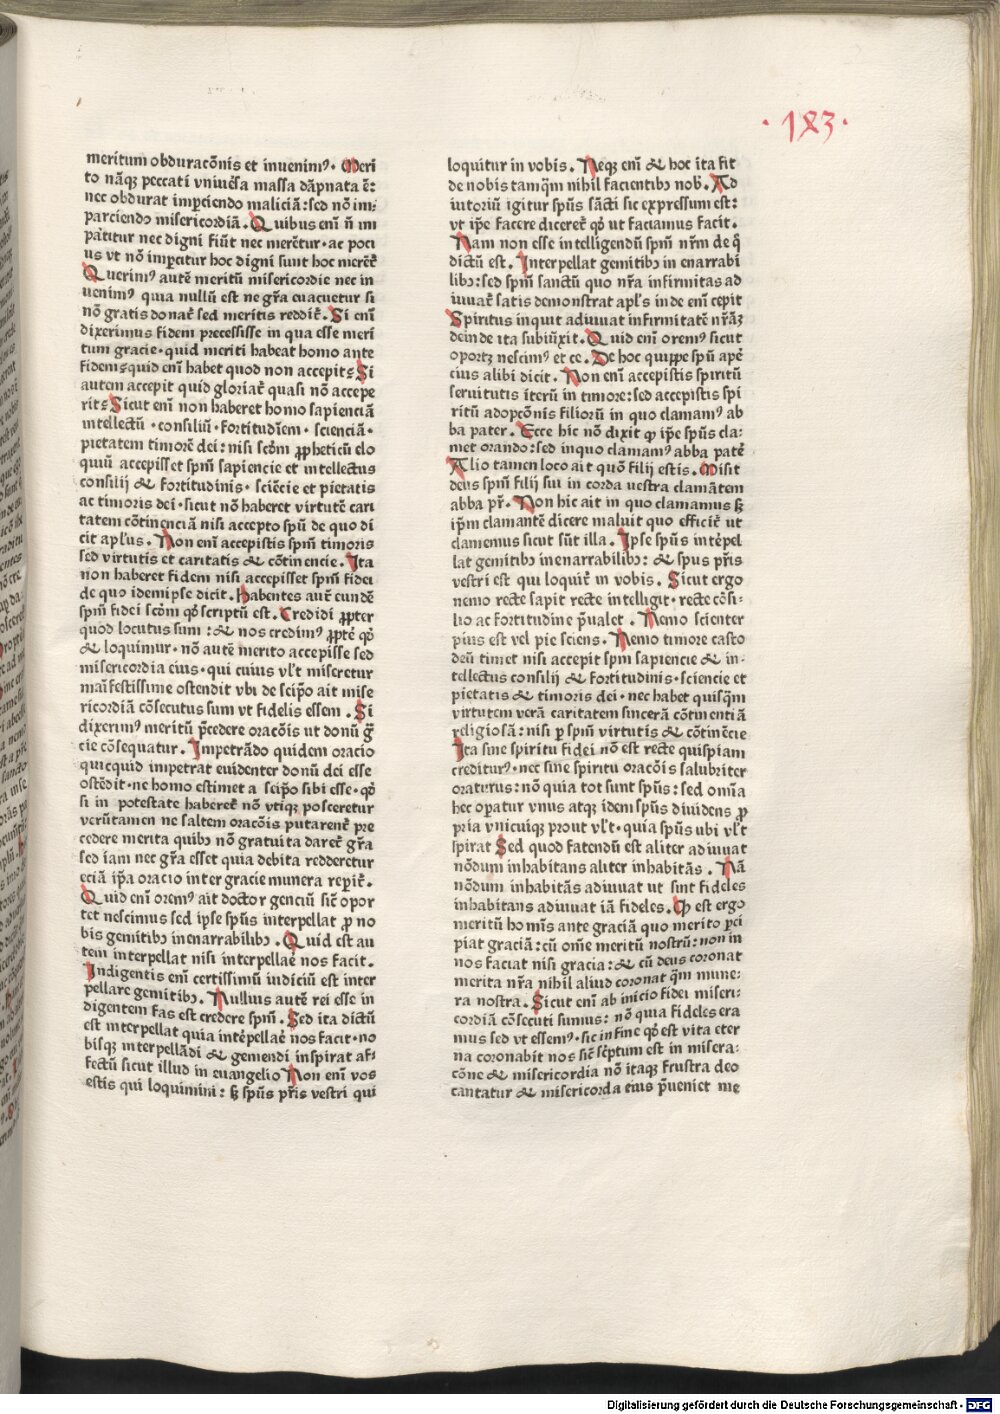 · 183 ·
meritum obduracõnis et inuenimꝰ. Meri
to nãqꝫ peccati vniuẽsa massa dãpnata ẽ:
nec obdurat impꝑciendo maliciã: sed nõ im-
parciendo misericordiã. Quibus enĩ ñ im
patitur nec digni fiũt nec merẽtur · ac poci
us vt nõ impꝑciatur hoc digni sunt hoc merẽt̃
Querimꝰ autẽ meritũ misericordie nec in
uenimꝰ quia nullũ est ne gr̃a euacuetur si
nõ gratis donat̃ sed meritis reddit̃. Si enĩ
dixerimus fidem precessisse in qua esse meri
tum gracie · quid meriti habeat homo ante
fidem? quid enĩ habet quod non accepit? Si
autem accepit quid gloriat̃ quasi nõ accepe
rit? Sicut enĩ non haberet homo sapienciã
intellectũ · consiliũ · fortitudĩem · scienciã ·
pietatem timorẽ dei: nisi scḋm ꝓpheticũ elo
quiũ accepisset spm̃ sapiencie et intellectus
consilij & fortitudinis · sciẽcie et pietatis
ac timoris dei · sicut nõ haberet virtutẽ cari
tatem cõtinenciã nisi accepto spũ de quo di
cit apl'us. Non enĩ accepistis spm̃ timoris
sed virtutis et caritatis & cõtinencie. Ita
non haberet fidem nisi accepisset spm̃ fidei
de quo idem ipse dicit. Habentes aut̃ eundẽ
spm̃ fidei scḋm qḋ scriptũ est. Credidi ꝓpter
quod locutus sum: & nos credimꝰ ꝓpt̃ qḋ
& loquimur · nõ autẽ merito accepisse sed
misericordia eius · qui cuius vl't miseretur
manĩfestissime ostendit vbi de seip̃o ait mise
ricordiã cõsecutus sum vt fidelis essem. Si
dixerimꝰ meritũ p̃cedere oracõis ut donũ gr̃
cie cõsequatur. Impetrãdo quidem oracio
quicquid impetrat euidenter donũ dei esse
ostẽdit · ne homo estimet a seip̃o sibi esse · qḋ
si in potestate haberet̃ nõ vtiqꝫ posceretur
verũtamen ne saltem oracõis putarent̃ pre
cedere merita quibꝯ nõ gratuita daret̃ gr̃a
sed iam nec gr̃a esset quia debita redderetur
eciã ip̃a oracio inter gracie munera reperit̃.
Quid enĩ oremꝰ ait doctor genciũ sic̃ opor
tet nescimus sed ipse spũs interpellat ꝓ no
bis gemitibꝯ inenarrabilibꝯ. Quid est au
tem interpellat nisi interpellae̾ nos facit.
Indigentis enĩ certissimũ indiciũ est inter
pellare gemitibꝯ. Nullius autẽ rei esse in
digentem fas est credere spm̃. Sed ita dictũ
est interpellat quia intẽpellae̾ nos facit · no
bisqꝫ interpellãdi & gemendi inspirat af-
fectũ sicut illud in euangelio Non enĩ vos
estis qui loquimini: sꝫ spũs pr̃is vestri qui
loquitur in vobis. Neqꝫ enĩ & hoc ita fit
de nobis tamqm̃ nihil facientibꝯ nob̾. Ad
iutoriũ igitur spũs sãcti sic expressum est:
vt ip̃e facere diceret̃ qḋ ut faciamus facit.
Nam non esse intelligendũ spm̃ nr̃m de q̾
dictũ est. Interpellat gemitibꝯ in enarrabi
libꝯ: sed spm̃ sanctũ quo nr̃a infirmitas ad
iuuat̃ satis demonstrat apl's inde enĩ cepit
Spiritus inquit adiuuat infirmitatẽ nr̃aꝫ
deinde ita subiũxit. Quid enĩ oremꝰ sicut
oportꝫ nescimꝰ et ce. De hoc quippe spũ ape̾
cius alibi dicit. Non enĩ accepistis spiritũ
seruitutis iterũ in timore: sed accepistis spi
ritũ adopcõnis filiorũ in quo clamamꝰ ab
ba pater. Ecce hic nõ dixit qꝫ ip̃e spũs cla-
met orando: sed in quo clamamꝰ abba pate̾
Alio tamen loco ait quõ filij estis. Misit
deus spm̃ filij sui in corda uestra clamãtem
abba pr̃. Non hic ait in quo clamamus sꝫ
ip̃m clamantẽ dicere maluit quo efficit̃ ut
clamemus sicut sũt illa. Ipse spũs intẽpel
lat gemitibꝯ inenarrabilibꝯ: & spus pr̃is
vestri est qui loquit̃ in vobis. Sicut ergo
nemo recte sapit recte intelligit · recte cõsi-
lio ac fortitudine p̃ualet. Nemo scienter
pius est vel pie sciens. Nemo timore casto
deũ timet nisi accepit spm̃ sapiencie & in-
tellectus consilij & fortitudinis · sciencie et
pietatis & timoris dei · nec habet quisqm̃
virtutem verã caritatem sincerã cõtinentiã
religiosã: nisi ꝑ spm̃ virtutis & cõtinẽcie
Ita sine spiritu fidei nõ est recte quispiam
crediturꝰ · nec sine spiritu oracõis salubriter
oraturus: nõ quia tot sunt spũs: sed om̃ia
hec oꝑatur vnus atqꝫ idem spũs diuidens ꝓ
pria vnicuiqꝫ prout vl't · quia spũs ubi vl't
spirat Sed quod fatendũ est aliter adiuuat
nõdum inhabitans aliter inhabitãs. Nã
nõdum inhabitãs adiuuat ut sint fideles
inhabitans adiuuat iã fideles. Qḋ est ergo
meritũ homĩs ante graciã quo merito ꝑci
piat graciã: cũ om̃e meritũ nostrũ: non in
nos faciat nisi gracia: & cũ deus coronat
merita nr̃a nihil aliud coronat qm̃ mune-
ra nostra. Sicut enĩ ab inicio fidei miseri-
cordiã cõsecuti sumus: nõ quia fideles era
mus sed vt essemꝰ · sic in fine qḋ est vita eter
na coronabit nos sic̃ sc̃ptum est in misera-
cõne & misericordia nõ itaqꝫ frustra deo
cantatur & misericorda eius p̃ueniet me
Digitalisierung gefördert durch die Deutsche Forschungsgemeinschaft - DFG